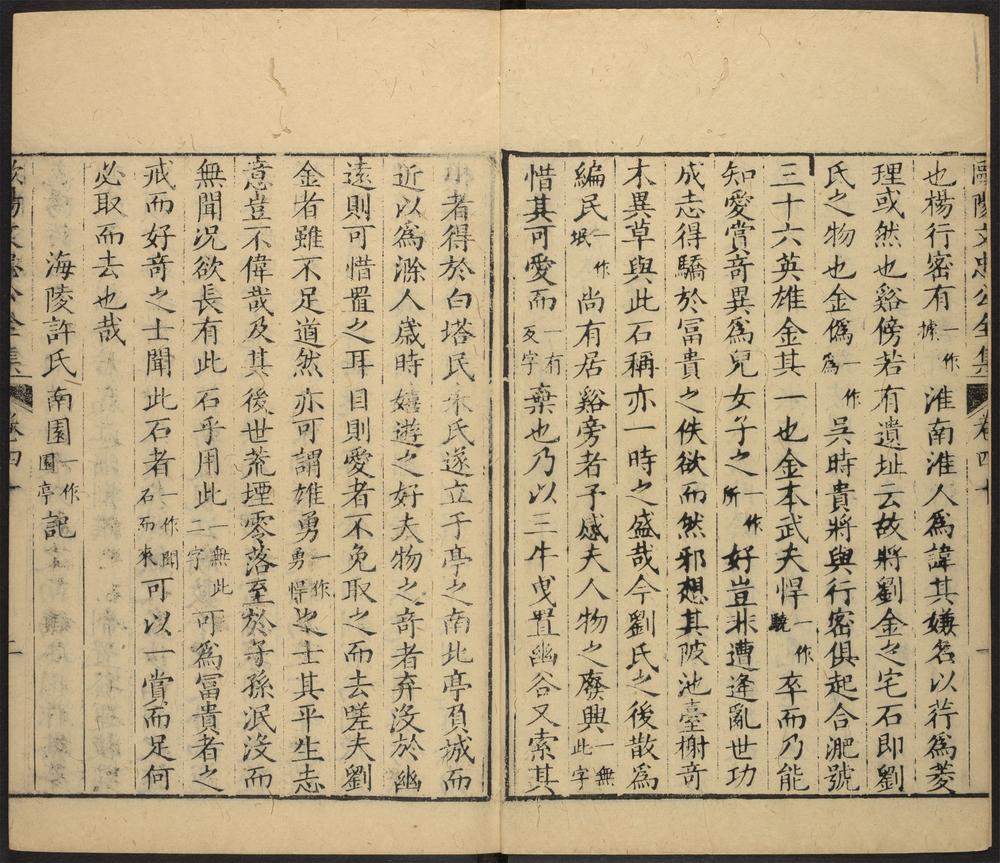 歐陽文忠公全集 卷四十 一
也楊行密有一作據淮南淮人爲諱其嫌名以荇爲菱
理或然也谿傍若有遺址云故將劉金之宅石即劉
氏之物也金僞一作爲吳時貴將與行密俱起合淝號
三十六英雄金其一也金本武夫悍一作驍卒而乃能
知愛賞奇異爲兒女子之一作所好豈非遭逢亂世功
成志得驕於冨貴之佚欲而然邪想其陂池臺榭奇
木異草與此石稱亦一時之盛哉今劉氏之後散爲
編民一作氓尚有居谿旁者予感夫人物之廢興一無此字
惜其可愛而一有反字棄也乃以三牛曳置幽谷又索其
小者得於白塔民朱氏遂立于亭之南北亭負城而
近以爲滁人歲時嬉遊之好夫物之奇者弃沒於幽
遠則可惜置之耳目則愛者不免取之而去嗟夫劉
金者雖不足道然亦可謂雄勇一作勇悍之士其平生志
意豈不偉哉及其後世荒堙零落至於子孫泯沒而
無聞况欲長有此石乎用此一無此二字可爲冨貴者之
戒而好奇之士聞此石者一作聞石而來可以一賞而足何
必取而去也哉
海陵許氏南園一作園亭記